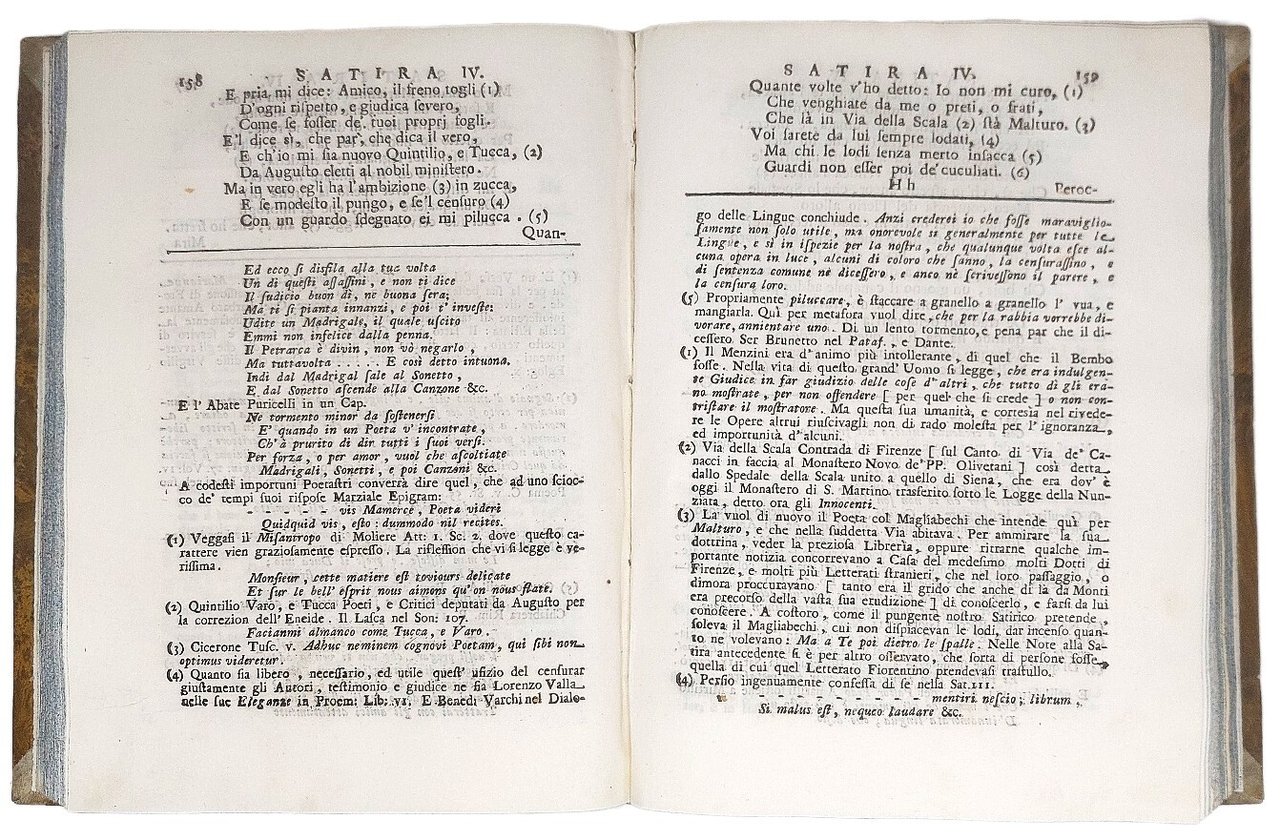 158 SATIRA IV.
E pria mi dice: Amico, il freno togli (1)
D'ogni rispetto, e giudica severo,
Come se fosser de' tuoi proprj fogli.
E'l dice sì, che par', che dica il vero,
E ch'io mi sia nuovo Quintilio, e Tucca, (2)
Da Augusto eletti al nobil ministero.
Ma in vero egli ha l'ambizione (3) in zucca,
E se modesto il pungo, e se'l censuro (4)
Con un guardo sdegnato ei mi pilucca. (5)
Quan-
Ed ecco si disfila alla tua volta
Un di questi assassini, e non ti dice
Il sudicio buon dì, ne buona sera;
Ma ti si pianta innanzi, e poi t' investe:
Udite un Madrigale, il quale uscito
Emmi non infelice dalla penna.
Il Petrarca è divin, non vò negarlo,
Ma tuttavolta ..... E così detto intuona.
Indi dal Madrigal sale al Sonetto,
E dal Sonetto ascende alla Canzone &c.
E l' Abate Puricelli in un Cap.
Ne tormento minor da sostenersi
E' quando in un Poeta v' incontrate,
Ch' à prurito di dir tutti i suoi versi.
Per forza, o per amor, vuol che ascoltiate
Madrigali, Sonetti, e poi Canzoni &c.
A codesti importuni Poetastri converrà dire quel, che ad uno scioc-
co de' tempi suoi rispose Marziale Epigram:
- - - - - vis Mamerce, Poeta videri
Quidquid vis, esto: dummodo nil recites.
(1) Veggasi il Misantropo di Moliere Att: 1. Sc: 2. dove questo ca-
rattere vien graziosamente espresso. La riflession che vi si legge è ve-
rissima.
Monsieur, cette matiere est toviours delicate
Et sur le bell' esprit nous aimons qu'on nous flate.
(2) Quintilio Varo, e Tucca Poeti, e Critici deputati da Augusto per
la correzion dell' Eneide. Il Lasca nel Son: 107.
Facianmi almanco come Tucca, e Varo.
(3) Cicerone Tusc. v. Adhuc neminem cognovi Poetam, qui sibi non
optimus videretur.
(4) Quanto sia libero, necessario, ed utile quest' ufizio del censurar
giustamente gli Autori, testimonio e giudice ne sia Lorenzo Valla
nelle sue Eleganze in Proem: Lib: vi. E Benedì Varchi nel Dialo-
SATIRA IV. 159
Quante volte v'ho detto: Io non mi curo, (1)
Che venghiate da me o preti, o frati,
Che là in Via della Scala (2) stà Malturo. (3)
Voi sarete da lui sempre lodati, (4)
Ma chi le lodi senza merto insacca (5)
Guardi non esser poi de' cuculiati. (6)
H h Peroc-
go delle Lingue conchiude. Anzi crederei io che fosse maraviglio-
samente non solo utile, ma onorevole sì generalmente per tutte le
Lingue, e sì in ispezie per la nostra, che qualunque volta esce al-
cuna opera in luce, alcuni di coloro che sanno, la censurassino, e
di sentenza comune nè dicessero, e anco nè scrivessono il parere, e
la censura loro.
(5) Propriamente piluccare, è staccare a granello a granello l' vua, e
mangiarla. Quì per metafora vuol dire, che per la rabbia vorrebbe di-
vorare, annientare uno. Di un lento tormento, e pena par che il di-
cessero Ser Brunetto nel Pataf., e Dante.
(1) Il Menzini era d'animo più intollerante, di quel che il Bembo
fosse. Nella vita di questo grand' Uomo si legge, che era indulgen-
te Giudice in far giudizio delle cose d'altri, che tutto dì gli era-
no mostrate, per non offendere [ per quel che si crede ] o non con-
tristare il mostratore. Ma questa sua umanità, e cortesia nel rivede-
re le Opere altrui riuscivagli non di rado molesta per l'ignoranza,
ed importunità d'alcuni.
(2) Via della Scala Contrada di Firenze [ sul Canto di Via de' Ca-
nacci in faccia al Monastero Novo de' PP. Olivetani ] così detta
dallo Spedale della Scala unito a quello di Siena, che era dov' è
oggi il Monastero di S. Martino trasferito sotto le Logge della Nun-
ziata, detto ora gl' Innocenti.
(3) La vuol di nuovo il Poeta col Magliabechi che intende quì per
Malturo, e che nella suddetta Via abitava. Per ammirare la sua
dottrina, veder la preziosa Libreria, oppure ritrarne qualche im-
portante notizia concorrevano a Casa del medesimo molti Dotti di
Firenze, e molti più Letterati stranieri, che nel loro passaggio, o
dimora proccuravano [ tanto era il grido che anche di là da Monti
era precorso della vasta sua erudizione ] di conoscerlo, e farsi da lui
conoscere. A costoro, come il pungente nostro Satirico pretende,
soleva il Magliabechi, cui non dispiacevan le lodi, dar incenso quan-
to ne volevano: Ma a Te poi dietro le spalle. Nelle Note alla Sa-
tira antecedente si è per altro osservato, che sorta di persone fosse
quella di cui quel Letterato Fiorentino prendevasi trastullo.
(4) Persio ingenuamente confessa di se nella Sat. III.
- - - - - - - - - mentiri nescio; librum,
Si malus est, nequeo laudare &c.